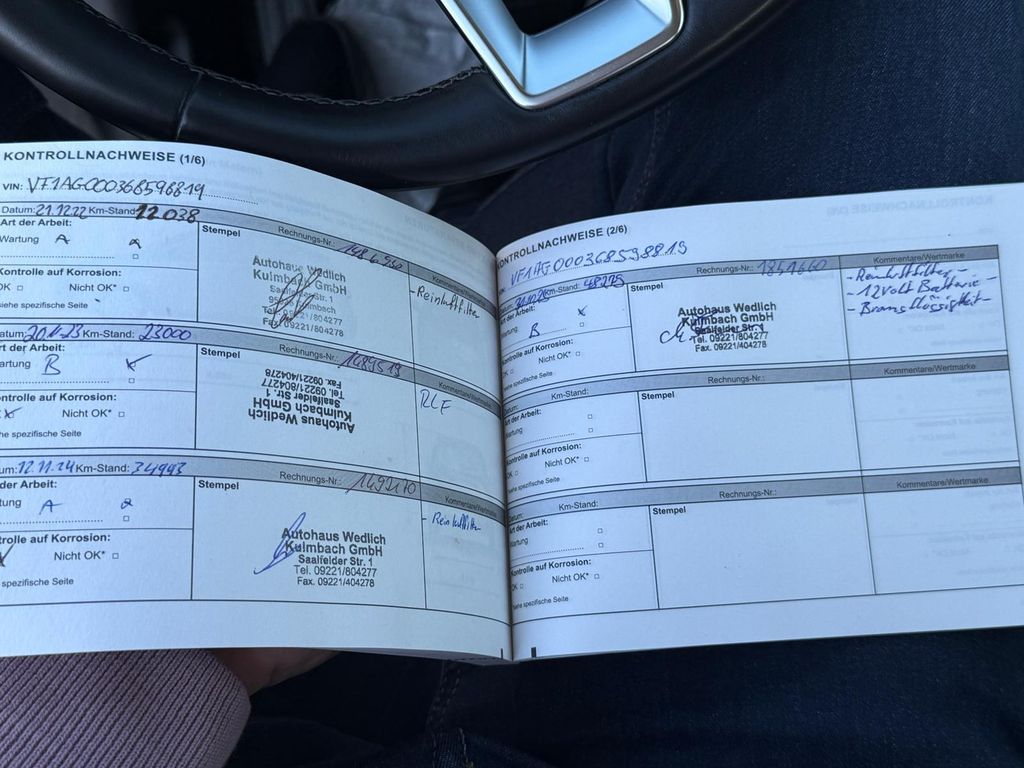 KONTROLLNACHWEISE (1/6)
VIN: VF1AG000368596819
Datum: 21.12.22 Km-Stand: 22038
Art der Arbeit:
Wartung A
Stempel
Rechnungs-Nr.:
Kommentare/Wertmarke
Kontrolle auf Korrosion:
OK Nicht OK*
siehe spezifische Seite
Autohaus Wedlich
Kulmbach GmbH
Saalfelder Str. 1
Tel. 09221/804277
Fax. 09221/404278
- Reinluftfilter
Datum: 20.11.23 Km-Stand: 23000
Art der Arbeit:
Wartung B
Stempel
Rechnungs-Nr.: 1489519
Kommentare/Wertmarke
Kontrolle auf Korrosion:
Nicht OK*
siehe spezifische Seite
Autohaus Wedlich
Kulmbach GmbH
Saalfelder Str. 1
Tel. 09221/804277
Fax 09221/404278
RLF
Datum: 12.11.24 Km-Stand: 34993
Art der Arbeit:
Wartung A
Stempel
Rechnungs-Nr.: 1492170
Kommentare/Wertmarke
Kontrolle auf Korrosion:
Nicht OK*
spezifische Seite
Autohaus Wedlich
Kulmbach GmbH
Saalfelder Str. 1
Tel. 09221/804277
Fax. 09221/404278
- Reinluftfilter
KONTROLLNACHWEISE (2/6)
VF1AG000368598819
Km-Stand: 48275
Art der Arbeit:
Wartung B
Stempel
Rechnungs-Nr.: 1851660
Kommentare/Wertmarke
Kontrolle auf Korrosion:
Nicht OK*
siehe spezifische Seite
Autohaus Wedlich
Kulmbach GmbH
Saalfelder Str. 1
Tel. 09221/804277
Fax. 09221/404278
- Reinluftfilter -
- 12Volt Batterie
- Bremsflüssigkeit -
Datum: Km-Stand:
Art der Arbeit:
Wartung
Stempel
Rechnungs-Nr.:
Kommentare/Wertmarke
Kontrolle auf Korrosion:
OK Nicht OK*
siehe spezifische Seite
Datum: Km-Stand:
Art der Arbeit:
Wartung
Stempel
Rechnungs-Nr.:
Kommentare/Wertmarke
Kontrolle auf Korrosion:
OK Nicht OK*
siehe spezifische Seite